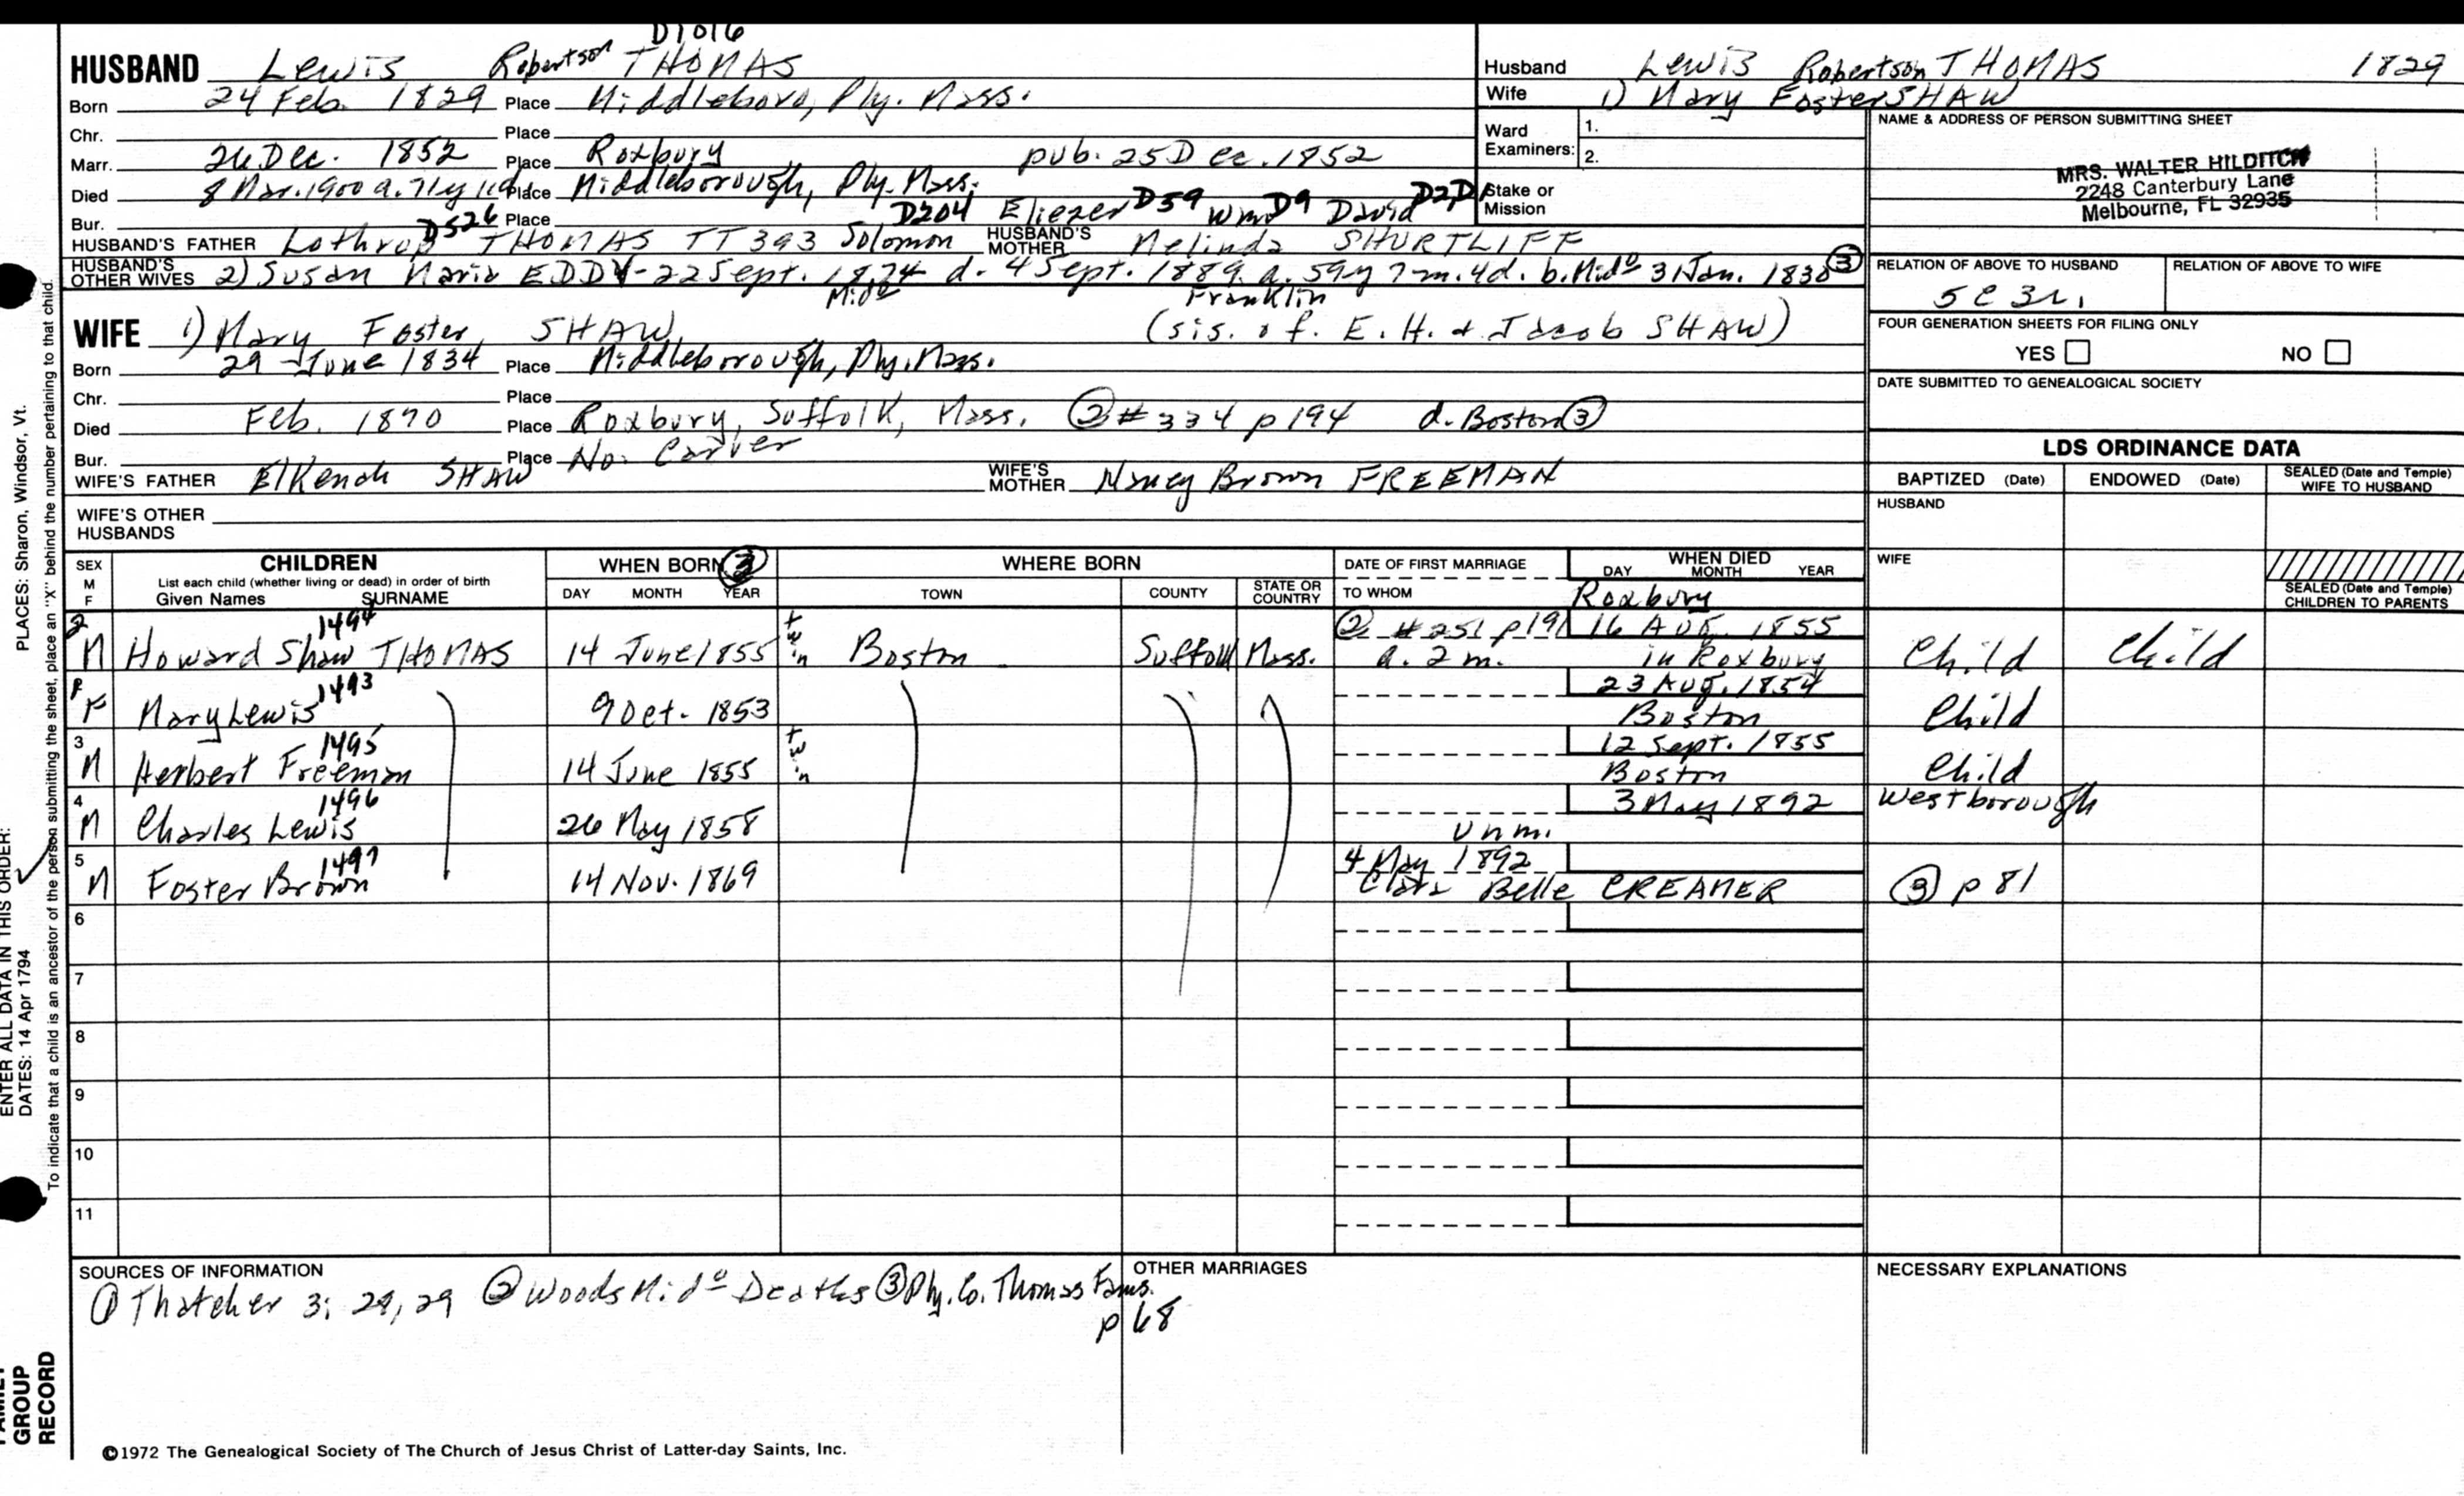 D1016
HUSBAND Lewis Robertson THOMAS
Born 24 Feb. 1829 Place Middleboro, Ply. Mass.
Chr. Place
Marr. 26 Dec. 1852 Place Roxbury pub. 25 Dec. 1852
Died 8 Mar. 1900 a. 71y 11d Place Middleborough, Ply. Mass.
Bur. Place
D526 D204 Eliezer D59 Wm D9 David D2, D1
HUSBAND'S FATHER Lothrop THOMAS TT393 Solomon HUSBAND'S MOTHER Melinda SHURTLIFF
HUSBAND'S OTHER WIVES 2) Susan Maria EDDY - 22 Sept. 1874 d. 4 Sept. 1889 a. 59y 7m. 4d. b. Mido 31 Jan. 1830 ③
Mido Franklin
WIFE 1) Mary Foster SHAW (sis. of. E. H. & Jacob SHAW)
Born 29 June 1834 Place Middleborough, Ply. Mass.
Chr. Place
Died Feb. 1890 Place Roxbury, Suffolk, Mass. ② #334 p194 d. Boston ③
Bur. Place No. Carver
WIFE'S FATHER Elkenah SHAW WIFE'S MOTHER Nancy Brown FREEMAN
WIFE'S OTHER HUSBANDS
Husband Lewis Robertson THOMAS 1829
Wife 1) Mary Foster SHAW
Ward Examiners: 1.
2.
Stake or Mission
NAME & ADDRESS OF PERSON SUBMITTING SHEET
MRS. WALTER HILDITCH
2248 Canterbury Lane
Melbourne, FL 32935
RELATION OF ABOVE TO HUSBAND RELATION OF ABOVE TO WIFE
5C3R,
FOUR GENERATION SHEETS FOR FILING ONLY
YES NO
DATE SUBMITTED TO GENEALOGICAL SOCIETY
LDS ORDINANCE DATA
BAPTIZED (Date) ENDOWED (Date) SEALED (Date and Temple) WIFE TO HUSBAND
HUSBAND
WIFE
SEALED (Date and Temple) CHILDREN TO PARENTS
SEX M F CHILDREN WHEN BORN ③ WHERE BORN DATE OF FIRST MARRIAGE WHEN DIED
List each child (whether living or dead) in order of birth
Given Names SURNAME DAY MONTH YEAR TOWN COUNTY STATE OR COUNTRY TO WHOM DAY MONTH YEAR
Roxbury
2 1494 ② #251 p191 16 Aug. 1855
M Howard Shaw THOMAS 14 June 1855 twin Boston Suffolk Mass. a. 2 m. in Roxbury Child Child
1493 23 Aug. 1854
F Mary Lewis 9 Oct. 1853 Boston Child
3 1495 12 Sept. 1855
M Herbert Freeman 14 June 1855 twin Boston Child
4 1496 3 May 1892 Westborough
M Charles Lewis 26 May 1858 unm.
5 1497 4 May 1892
M Foster Brown 14 Nov. 1869 Clara Belle CREAMER ③ p 81
6
7
8
9
10
11
SOURCES OF INFORMATION
① Thatcher 3: 28, 29 ② Woods Mido Deaths ③ Ply. Co. Thomas Fams.
p 68
OTHER MARRIAGES
NECESSARY EXPLANATIONS
©1972 The Genealogical Society of The Church of Jesus Christ of Latter-day Saints, Inc.
ENTER ALL DATA IN THIS ORDER:
PLACES: Sharon, Windsor, Vt.
DATES: 14 Apr 1794
To indicate that a child is an ancestor of the person submitting the sheet, place an "X" behind the number pertaining to that child.
GROUP
RECORD